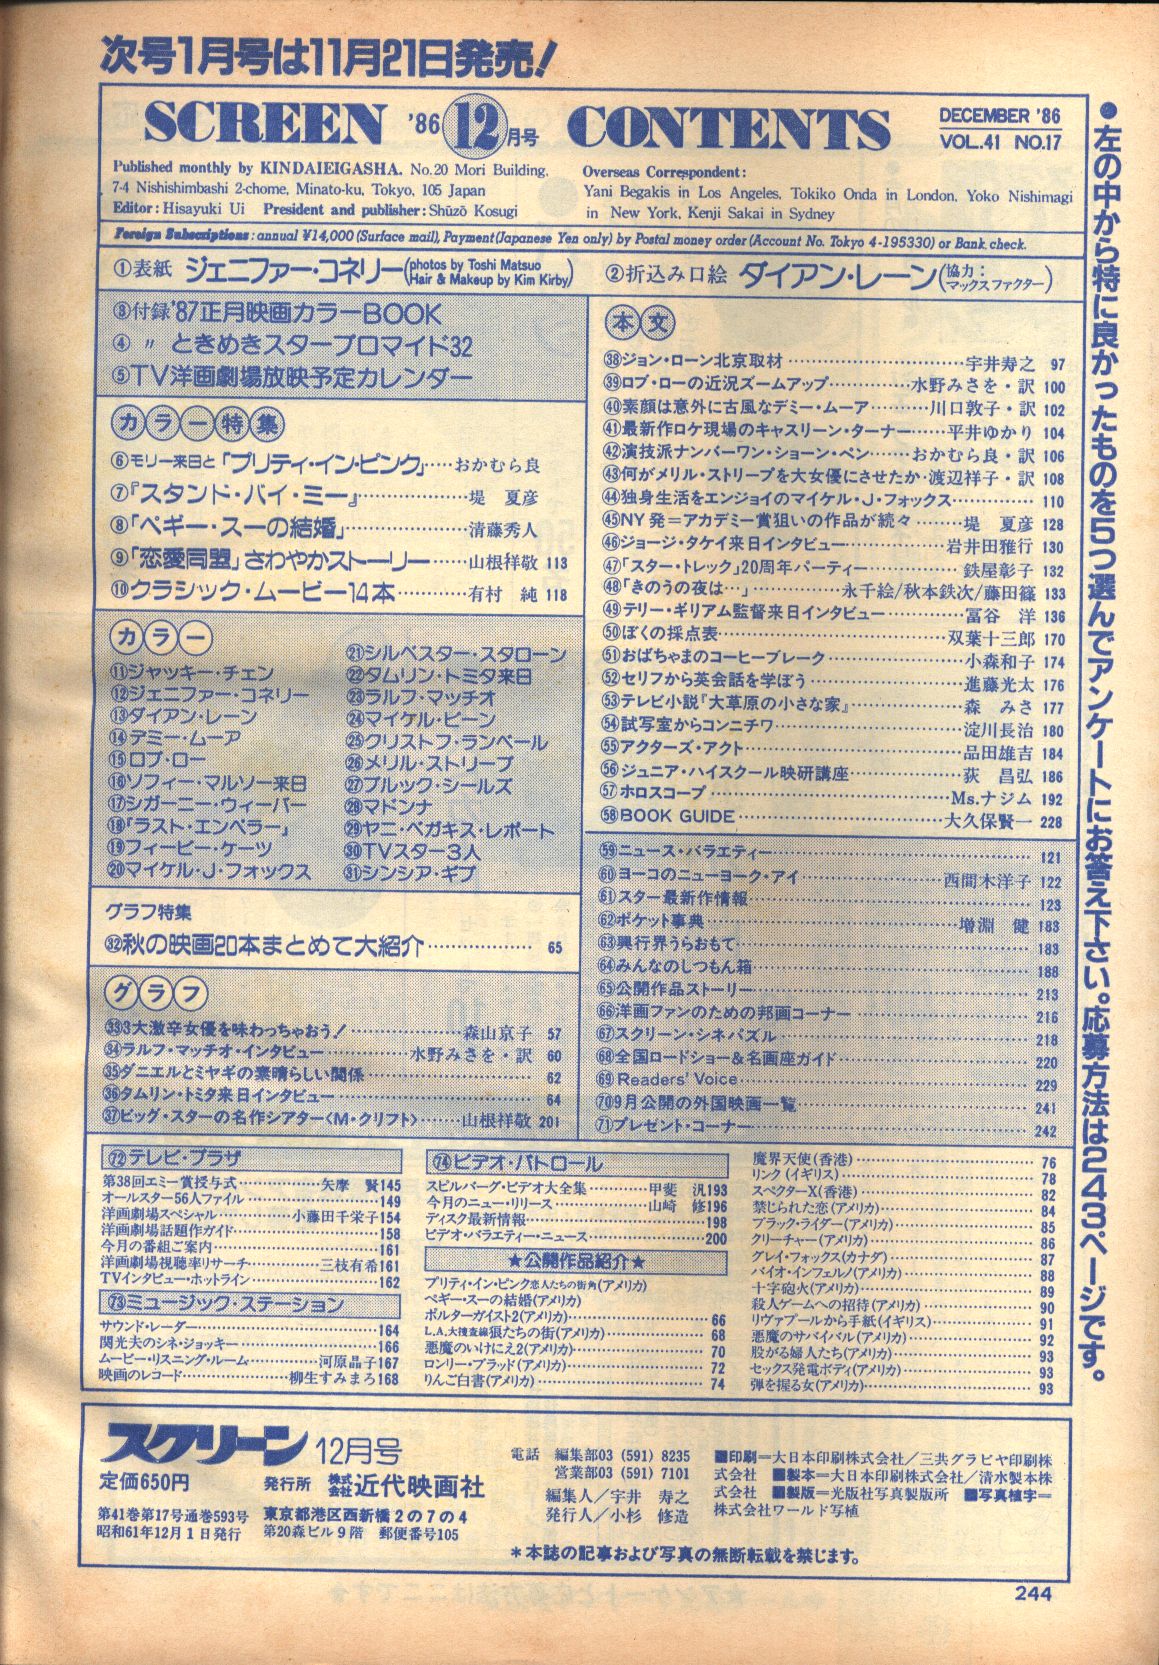 次号1月号は11月21日発売!
SCREEN '86 12月号 CONTENTS
DECEMBER '86
VOL.41 NO.17
Published monthly by KINDAIEIGASHA. No.20 Mori Building,
7-4 Nishishimbashi 2-chome, Minato-ku, Tokyo, 105 Japan
Editor: Hisayuki Ui President and publisher: Shūzō Kosugi
Overseas Correspondent:
Yani Begakis in Los Angeles, Tokiko Onda in London, Yoko Nishimagi
in New York, Kenji Sakai in Sydney
Foreign Subscriptions: annual ¥14,000 (Surface mail), Payment (Japanese Yen only) by Postal money order (Account No. Tokyo 4-195330) or Bank check.
①表紙 ジェニファー・コネリー(photos by Toshi Matsuo
Hair & Makeup by Kim Kirby)
②折込み口絵 ダイアン・レーン(協力:
マックスファクター)
③付録'87正月映画カラーBOOK
④ 〃 ときめきスターブロマイド32
⑤TV洋画劇場放映予定カレンダー
カラー特集
⑥モリー来日と「プリティ・イン・ピンク」……おかむら良
⑦『スタンド・バイ・ミー』………………堤 夏彦
⑧「ペギー・スーの結婚」………………清藤秀人
⑨「恋愛同盟」さわやかストーリー……山根祥敬 113
⑩クラシック・ムービー14本…………有村 純 118
カラー
⑪ジャッキー・チェン
⑫ジェニファー・コネリー
⑬ダイアン・レーン
⑭デミー・ムーア
⑮ロブ・ロー
⑯ソフィー・マルソー来日
⑰シガーニー・ウィーバー
⑱「ラスト・エンペラー」
⑲フィービー・ケーツ
⑳マイケル・J・フォックス
㉑シルベスター・スタローン
㉒タムリン・トミタ来日
㉓ラルフ・マッチオ
㉔マイケル・ビーン
㉕クリストフ・ランベール
㉖メリル・ストリープ
㉗ブルック・シールズ
㉘マドンナ
㉙ヤニ・ベガキス・レポート
㉚TVスター3人
㉛シンシア・ギブ
グラフ特集
㉜秋の映画20本まとめて大紹介………………65
グラフ
㉝3大激辛女優を味わっちゃおう!………………森山京子 57
㉞ラルフ・マッチオ・インタビュー…………水野みさを・訳 60
㉟ダニエルとミヤギの素晴らしい関係………………62
㊱タムリン・トミタ来日インタビュー………………64
㊲ビッグ・スターの名作シアター〈M・クリフト〉……山根祥敬 201
本文
㊳ジョン・ローン北京取材………………宇井寿之 97
㊴ロブ・ローの近況ズームアップ…………水野みさを・訳 100
㊵素顔は意外に古風なデミー・ムーア………川口敦子・訳 102
㊶最新作ロケ現場のキャスリーン・ターナー……平井ゆかり 104
㊷演技派ナンバーワン・ショーン・ペン……おかむら良・訳 106
㊸何がメリル・ストリープを大女優にさせたか・渡辺祥子・訳 108
㊹独身生活をエンジョイのマイケル・J・フォックス…………110
㊺NY発=アカデミー賞狙いの作品が続々………堤 夏彦 128
㊻ジョージ・タケイ来日インタビュー…………岩井田雅行 130
㊼「スター・トレック」20周年パーティー…………鉄屋彰子 132
㊽「きのうの夜は…」…………永千絵/秋本鉄次/藤田篠 133
㊾テリー・ギリアム監督来日インタビュー…………冨谷 洋 136
㊿ぼくの採点表………………双葉十三郎 170
51おばちゃまのコーヒーブレーク………………小森和子 174
52セリフから英会話を学ぼう………………進藤光太 176
53テレビ小説『大草原の小さな家』…………森 みさ 177
54試写室からコンニチワ………………淀川長治 180
55アクターズ・アクト………………品田雄吉 184
56ジュニア・ハイスクール映研講座…………荻 昌弘 186
57ホロスコープ………………Ms.ナジム 192
58BOOK GUIDE………………大久保賢一 228
59ニュース・バラエティー………………121
60ヨーコのニューヨーク・アイ…………西間木洋子 122
61スター最新作情報………………123
62ポケット事典………………増淵 健 183
63興行界うらおもて………………183
64みんなのしつもん箱………………188
65公開作品ストーリー………………213
66洋画ファンのための邦画コーナー………………216
67スクリーン・シネパズル………………218
68全国ロードショー&名画座ガイド………………220
69Readers' Voice………………229
70 9月公開の外国映画一覧………………241
71プレゼント・コーナー………………242
72テレビ・プラザ
第38回エミー賞授与式…………矢摩 賢145
オールスター56人ファイル…………149
洋画劇場スペシャル…………小藤田千栄子154
洋画劇場話題作ガイド…………158
今月の番組ご案内…………161
洋画劇場視聴率リサーチ…………三枝有希161
TVインタビュー・ホットライン…………162
73ミュージック・ステーション
サウンド・レーダー…………164
関光夫のシネ・ジョッキー…………166
ムービー・リスニング・ルーム…………河原晶子167
映画のレコード…………柳生すみまろ168
74ビデオ・パトロール
スピルバーグ・ビデオ大全集………甲斐 汎193
今月のニュー・リリース…………山崎 修196
ディスク最新情報…………198
ビデオ・バラエティー・ニュース…………200
★公開作品紹介★
プリティ・イン・ピンク恋人たちの街角(アメリカ)
ペギー・スーの結婚(アメリカ)
ポルターガイスト2(アメリカ)…………66
L.A.大捜査線狼たちの街(アメリカ)…………68
悪魔のいけにえ2(アメリカ)…………70
ロンリー・ブラッド(アメリカ)…………72
りんご白書(アメリカ)…………74
魔界天使(香港)…………76
リンク(イギリス)…………78
スペクターX(香港)…………82
禁じられた恋(アメリカ)…………84
ブラック・ライダー(アメリカ)…………85
クリーチャー(アメリカ)…………86
グレイ・フォックス(カナダ)…………87
バイオ・インフェルノ(アメリカ)…………88
十字砲火(アメリカ)…………89
殺人ゲームへの招待(アメリカ)…………90
リヴァプールから手紙(イギリス)…………91
悪魔のサバイバル(アメリカ)…………92
股がる婦人たち(アメリカ)…………93
セックス発電ボディ(アメリカ)…………93
弾を握る女(アメリカ)…………93
●左の中から特に良かったものを5つ選んでアンケートにお答え下さい。応募方法は243ページです。
スクリーン 12月号
定価650円
発行所 株式会社近代映画社
第41巻第17号通巻593号
昭和61年12月1日発行
東京都港区西新橋2の7の4
第20森ビル9階 郵便番号105
電話 編集部03 (591) 8235
営業部03 (591) 7101
編集人/宇井 寿之
発行人/小杉 修造
■印刷=大日本印刷株式会社/三共グラビヤ印刷株
式会社 ■製本=大日本印刷株式会社/清水製本株
式会社 ■製版=光版社写真製版所 ■写真植字=
株式会社ワールド写植
*本誌の記事および写真の無断転載を禁じます。
244